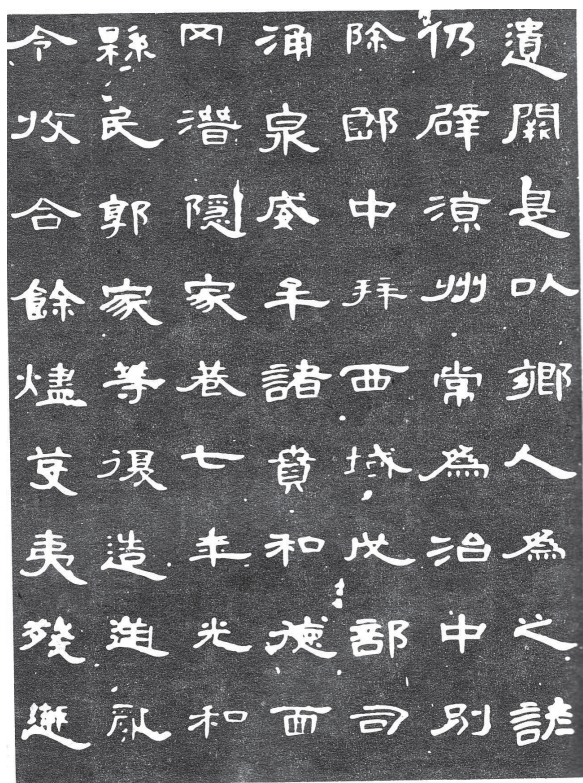 遺闕是以鄉人為之諺
仍辟涼州常為治中別
除郎中拜西域戊部司
涌泉威牟諸賁和德面
网潛隱家巷七年光和
縣民郭家等復造逆亂
令收合餘燼芟夷殘迸